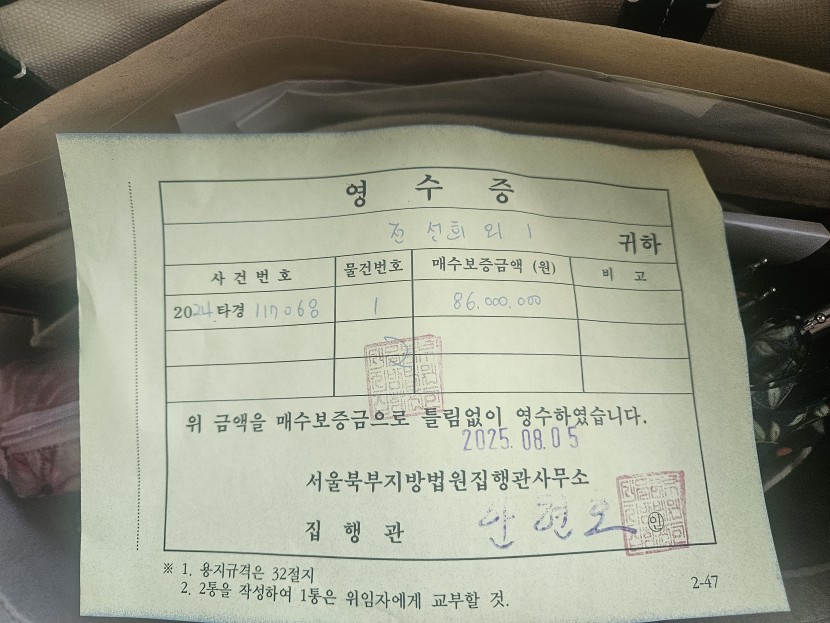 영 수 증
전 선희 외 1
귀하
사 건 번 호 물건번호 매수보증금액 (원) 비 고
2024 타경 117068 1 86,000,000
위 금액을 매수보증금으로 틀림없이 영수하였습니다.
2025. 08. 05
서울북부지방법원집행관사무소
집 행 관 안 현 오 인
※ 1. 용지규격은 32절지
2. 2통을 작성하여 1통은 위임자에게 교부할 것.
2-47